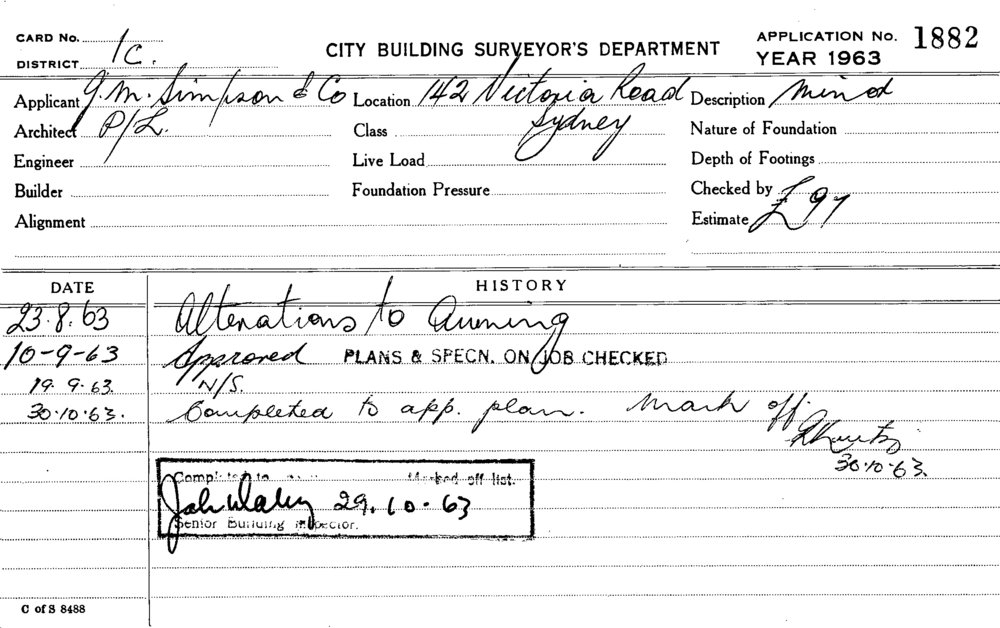 CARD No.
DISTRICT 1C.
CITY BUILDING SURVEYOR'S DEPARTMENT
APPLICATION No. 1882
YEAR 1963
Applicant J. M. Simpson & Co Location 142 Victoria Road Description Minor
Architect P/L. Class Sydney Nature of Foundation
Engineer Live Load Depth of Footings
Builder Foundation Pressure Checked by
Alignment Estimate £97
DATE HISTORY
23.8.63 Alterations to Awning
10-9-63 Approved PLANS & SPECN. ON JOB CHECKED
19.9.63. N/S.
30.10.63. Completed to app. plan. Mark off.
30.10.63.
Completed to Marked off list.
29.10.63
Senior Building Inspector.
C of S 8488